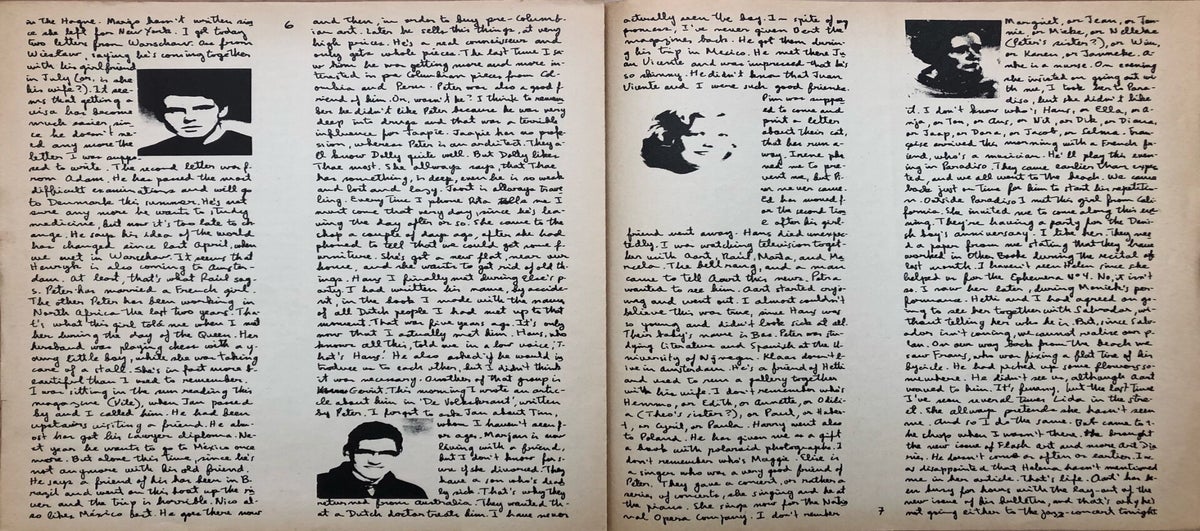 in the Hague. Margo hasn't written sin
ce she left for New York. I got today
two letters from Warschaw. One from
Waclaw, saying he's coming together
with his girlfriend
in July (or, is she
his wife?). It see-
ms that getting a
visa has become
much easier, sin-
ce he doesn't ne-
ed any more the
letter I was suppo
sed to write. The second letter was f-
rom Adam. He has passed the most
difficult examinations and will go
to Denmark this summer. He's not
sure any more he wants to study
medicine, but now it's too late to ch-
ange. He says his idea of the world
has changed since last April, when
we met in Warschaw. It seems that
Henryk is also coming to Amster-
dam. At least, that's what Raúl say-
s. Peter has married a French girl.
The other Peter has been working in
North Africa the last two years. Tha-
t's what this girl told me when I met
her during the day of the Queen. Her
husband was playing chess with a y-
oung little boy, while she was taking
care of a stall. She's in fact more b-
eautiful than I used to remember.
I was sitting in the sun reading this
magazine (Vile), when Jan passed
by and I called him. He had been
upstairs visiting a friend. He alm-
ost has got his lawyer diploma. Ne-
xt year he wants to go to Mexico once
more. But alone this time, since he's
not anymore with his old friend.
He says a friend of his has been in B-
razil and went on this boat up the ri-
ver and the trip is horrible. Nico al-
so likes México best. He goes there now
6
and then, in order to buy pre-Columb-
ian art. Later he sells this things, at very
high prices. He's a real connoisseur and
only gets whole pieces. The last time I sa-
w him he was getting more and more in-
terested in pre Columbian pieces from Col-
ombia and Peru. Peter was also a good f-
riend of him. Or, wasn't he? I think to remem
ber he didn't like Peter because he was very
deep into drugs and that was a terrible
influence for Jaapie. Jaapie has no profe-
sion, whereas Peter is an architect. They a-
ll know Dolly quite well. But Dolly likes
Thea most. She always says that Thea
has something, is deep, even he is so weak
and lost and lazy. Joost is always trave
lling. Every time I phone Rita tells me I
must come that very day, since he's lea-
ving the day after or so. She came to the
shop a couple of days ago, after she had
phoned to tell that we could get some f-
urniture. She's got a new flat, near our
house, and she wants to get rid of old th-
ings. Hans I finally met during Else's p-
arty. I had written his name, by accide
nt, in the book I made with the names
of all Dutch people I had met up to that
moment. That was five years ago. It's only
now that I actually met him. Hans, who
knows all this, told me in a low voice: 'T-
hat's Hans'. He also asked if he would in
troduce us to each other, but I didn't think
it was necessary. Another of that group is
Gerrit. This morning I read an artic-
le about him in 'De Volkskrant', written
by Peter. I forgot to ask Jan about Tim,
whom I haven't seen f-
or ages. Marjan is now
living with a friend,
but I don't know for s-
ure if she divorced. They
have a son who's dead
ly sick. That's why they
returned from Australia. They wanted th-
at a Dutch doctor treats him. I have never
actually seen the boy. In spite of my
promises, I've never given Gent the
magazines back. He got them durin-
g his trip in Mexico. He met there Ju
an Vicente and was impressed that he's
so skinny. He didn't know that Juan
Vicente and I were such good friends.
Pim was suppos
ed to come and
print a letter
about their cat,
that has run a-
way. Irene pho
ned me to pre-
vent me, but Pi-
m never came.
Ed has moved f-
or the second tim
e after his girl-
friend went away. Hans died unexpec
tedly. I was watching television toget-
her with Aart, Raúl, Marta, and Ma-
ricela. The bell rang, and a man
came to tell Aart this news. Peter
wanted to see him. Aart started cryi-
ng and went out. I almost couldn't
believe this was true, since Hans was
so young and didn't look sick at all.
Their baby's name is Bas. Peter is stu-
dying Literature and Spanish at the U-
niversity of Nijmegen. Klaas doesn't l-
ive in Amsterdam. He's a friend of Hetti
and used to run a gallery together
with his wife. I don't remember who's
Hermina, or Edith, or Annette, or Odili-
a (Theo's sister?), or Paul, or Huber
t, or Cyril, or Paula. Harry went also
to Poland. He has given me as a gift
a book with polaroid photographs. I
don't remember who's Magga. Elise is
a singer who was a very good friend of
Peter. They gave a concert, or rather a
series of concerts, she singing and he at
the piano. She sings now for the Natio
nal Opera Company. I don't remember
Margriet, or Jean, or Jan-
nie, or Mieke, or Nelleke
(Peter's sister?), or Wim,
or Karen, or Janneke. A-
nke is a nurse. One evening
she insisted on going out wi
th me, I took her to Para-
diso, but she didn't like
it. I don't know who's, Hans, or Ella, or A-
nja, or Ton, or Ans, or Nil, or Dik, or Diana,
or Jaap, or Dora, or Jacob, or Selma. Fran
çoise arrived this morning with a French fri-
end, who's a musician. He'll play this even
ing in Paradiso. They came earlier than expec
ted, and we all went to the beach. We came
back just on time for him to start his repetitio-
n. Outside Paradiso I met this girl from Cali
fornia. She invited me to come along this eve
ning. They're having a party for the Dani-
sh boy's anniversary. I like her. They nee-
d a paper from me stating that they have
worked in Other Books during the recital of
last month. I haven't seen Helen since she
helped for the Ephemera Nº 4. No, it isn't
so. I saw her later, during Monick's per-
formance. Hetti and I had agreed on go-
ing to see her together with Salvador, wi-
thout telling her who he is. But, since Salv-
ador isn't coming, we cannot realize our p-
lan. On our way back from the beach we
saw Frans, who was fixing a flat tire of his
bycicle. He had picked up some flowers so-
mewhere. He didn't see us, although Aart
waved to him. It's funny, but the last time
I've seen several times Lida in the stre-
et. She allways pretends she hasn't seen
me. And so I do the same. Bart came to t-
he shop when I wasn't there. She brought
the new issue of Flash Art and more Art Dia
ries. He doesn't come so often as earlier. I'm
so disappointed that Helena hasn't mentioned
me in her article. That's life. Aart has be
en busy for hours with the lay-out of the
new issue of his bulletin, and that's why he's
not going either to the jazz-concert tonight
7